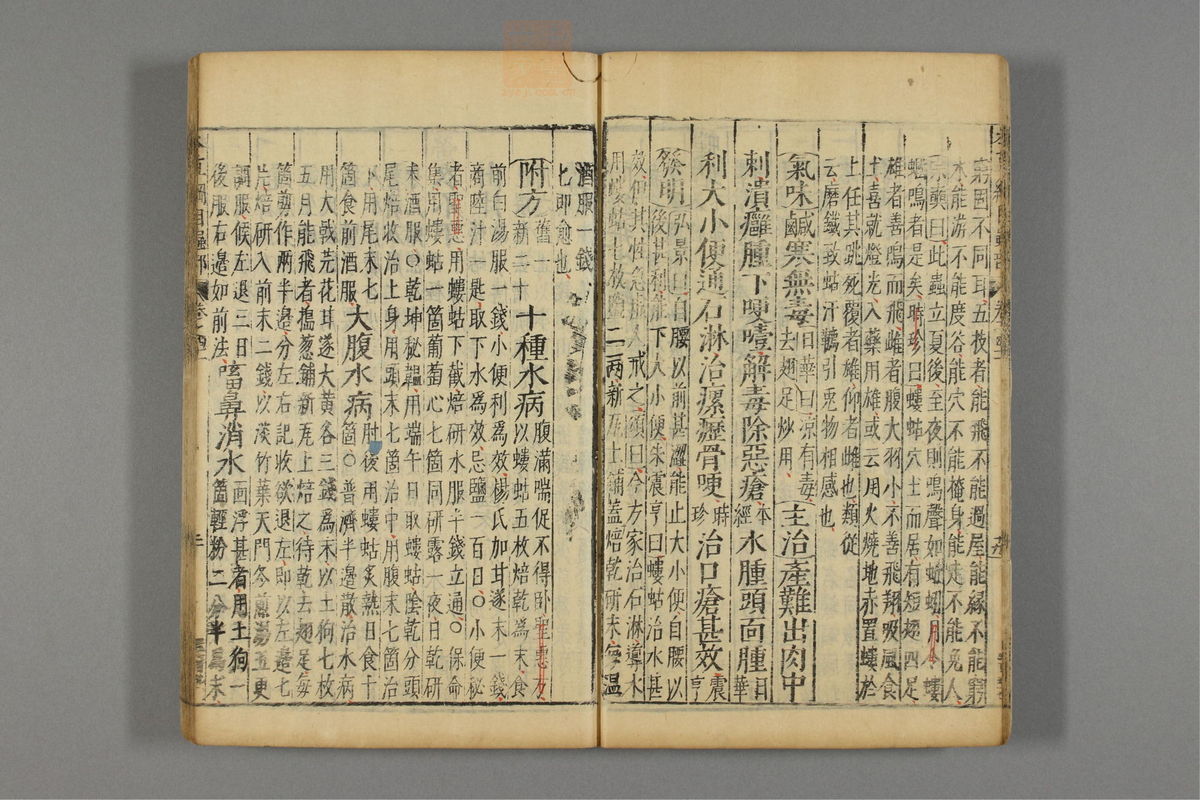 宗固不同耳五枝者能飛不能過屋能緣不能窮
木能游不能度谷能穴不能掩身能走不能免人
宗奭曰此蟲立夏後至夜則鳴聲如蚯蚓月令螻
蟈鳴者是矣時珍曰螻蛄穴土而居有短翅四足
雄者善鳴而飛雌者腹大羽小不善飛翔吸風食
土喜就燈光入藥用雄或云用火燒地赤置螻於
上任其跳死覆者雄仰者雌也類從
云磨鐵致蛄汗韉引兎物相感也
氣味鹹寒無毒日華曰涼有毒
去翅足炒用
主治產難出肉中
刺潰癰腫下哽噎解毒除惡瘡本
經水腫頭面腫日
華
利大小便通石淋治瘰癧骨哽時
珍治口瘡甚效震
亨
發明弘景曰自腰以前甚澀能止大小便自腰以
後甚利能下大小便朱震亨曰螻蛄治水甚
效但其性急虛人戒之頌曰今方家治石淋導水
用螻蛄七枚鹽二兩新瓦上鋪蓋焙乾研末每溫
酒服一錢
匕即愈也
附方舊一
新二十
十種水病腹滿喘促不得臥聖惠方
以螻蛄五枚焙乾為末食
前白湯服一錢小便利為效楊氏加甘遂末一錢
商陸汁一匙取下水為效忌鹽一百日○小便秘
者聖惠用螻蛄下截焙研水服半錢立通○保命
集用螻蛄一箇葡萄心七箇同研露一夜日乾研
末酒服○乾坤秘韞用端午日取螻蛄陰乾分頭
尾焙收治上身用頭末七箇治中用腹末七箇治
下用尾末七
箇食前酒服
大腹水病肘後用螻蛄炙熟日食十
箇○普濟半邊散治水病
用大戟芫花甘遂大黃各三錢為末以土狗七枚
五月能飛者搗葱鋪新瓦上焙之待乾去翅足每
箇剪作兩半邊分左右記收欲退左即以左邊七
片焙研入前末二錢以淡竹葉天門冬煎湯五更
調服候左退三日
後服右邊如前法
㗜鼻消水面浮甚者用土狗一
箇輕粉二分半為末